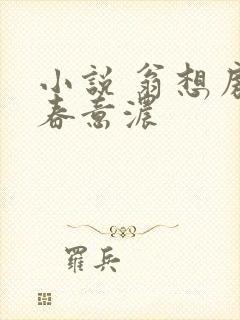 小說 翁想房
春意濃
羅兵